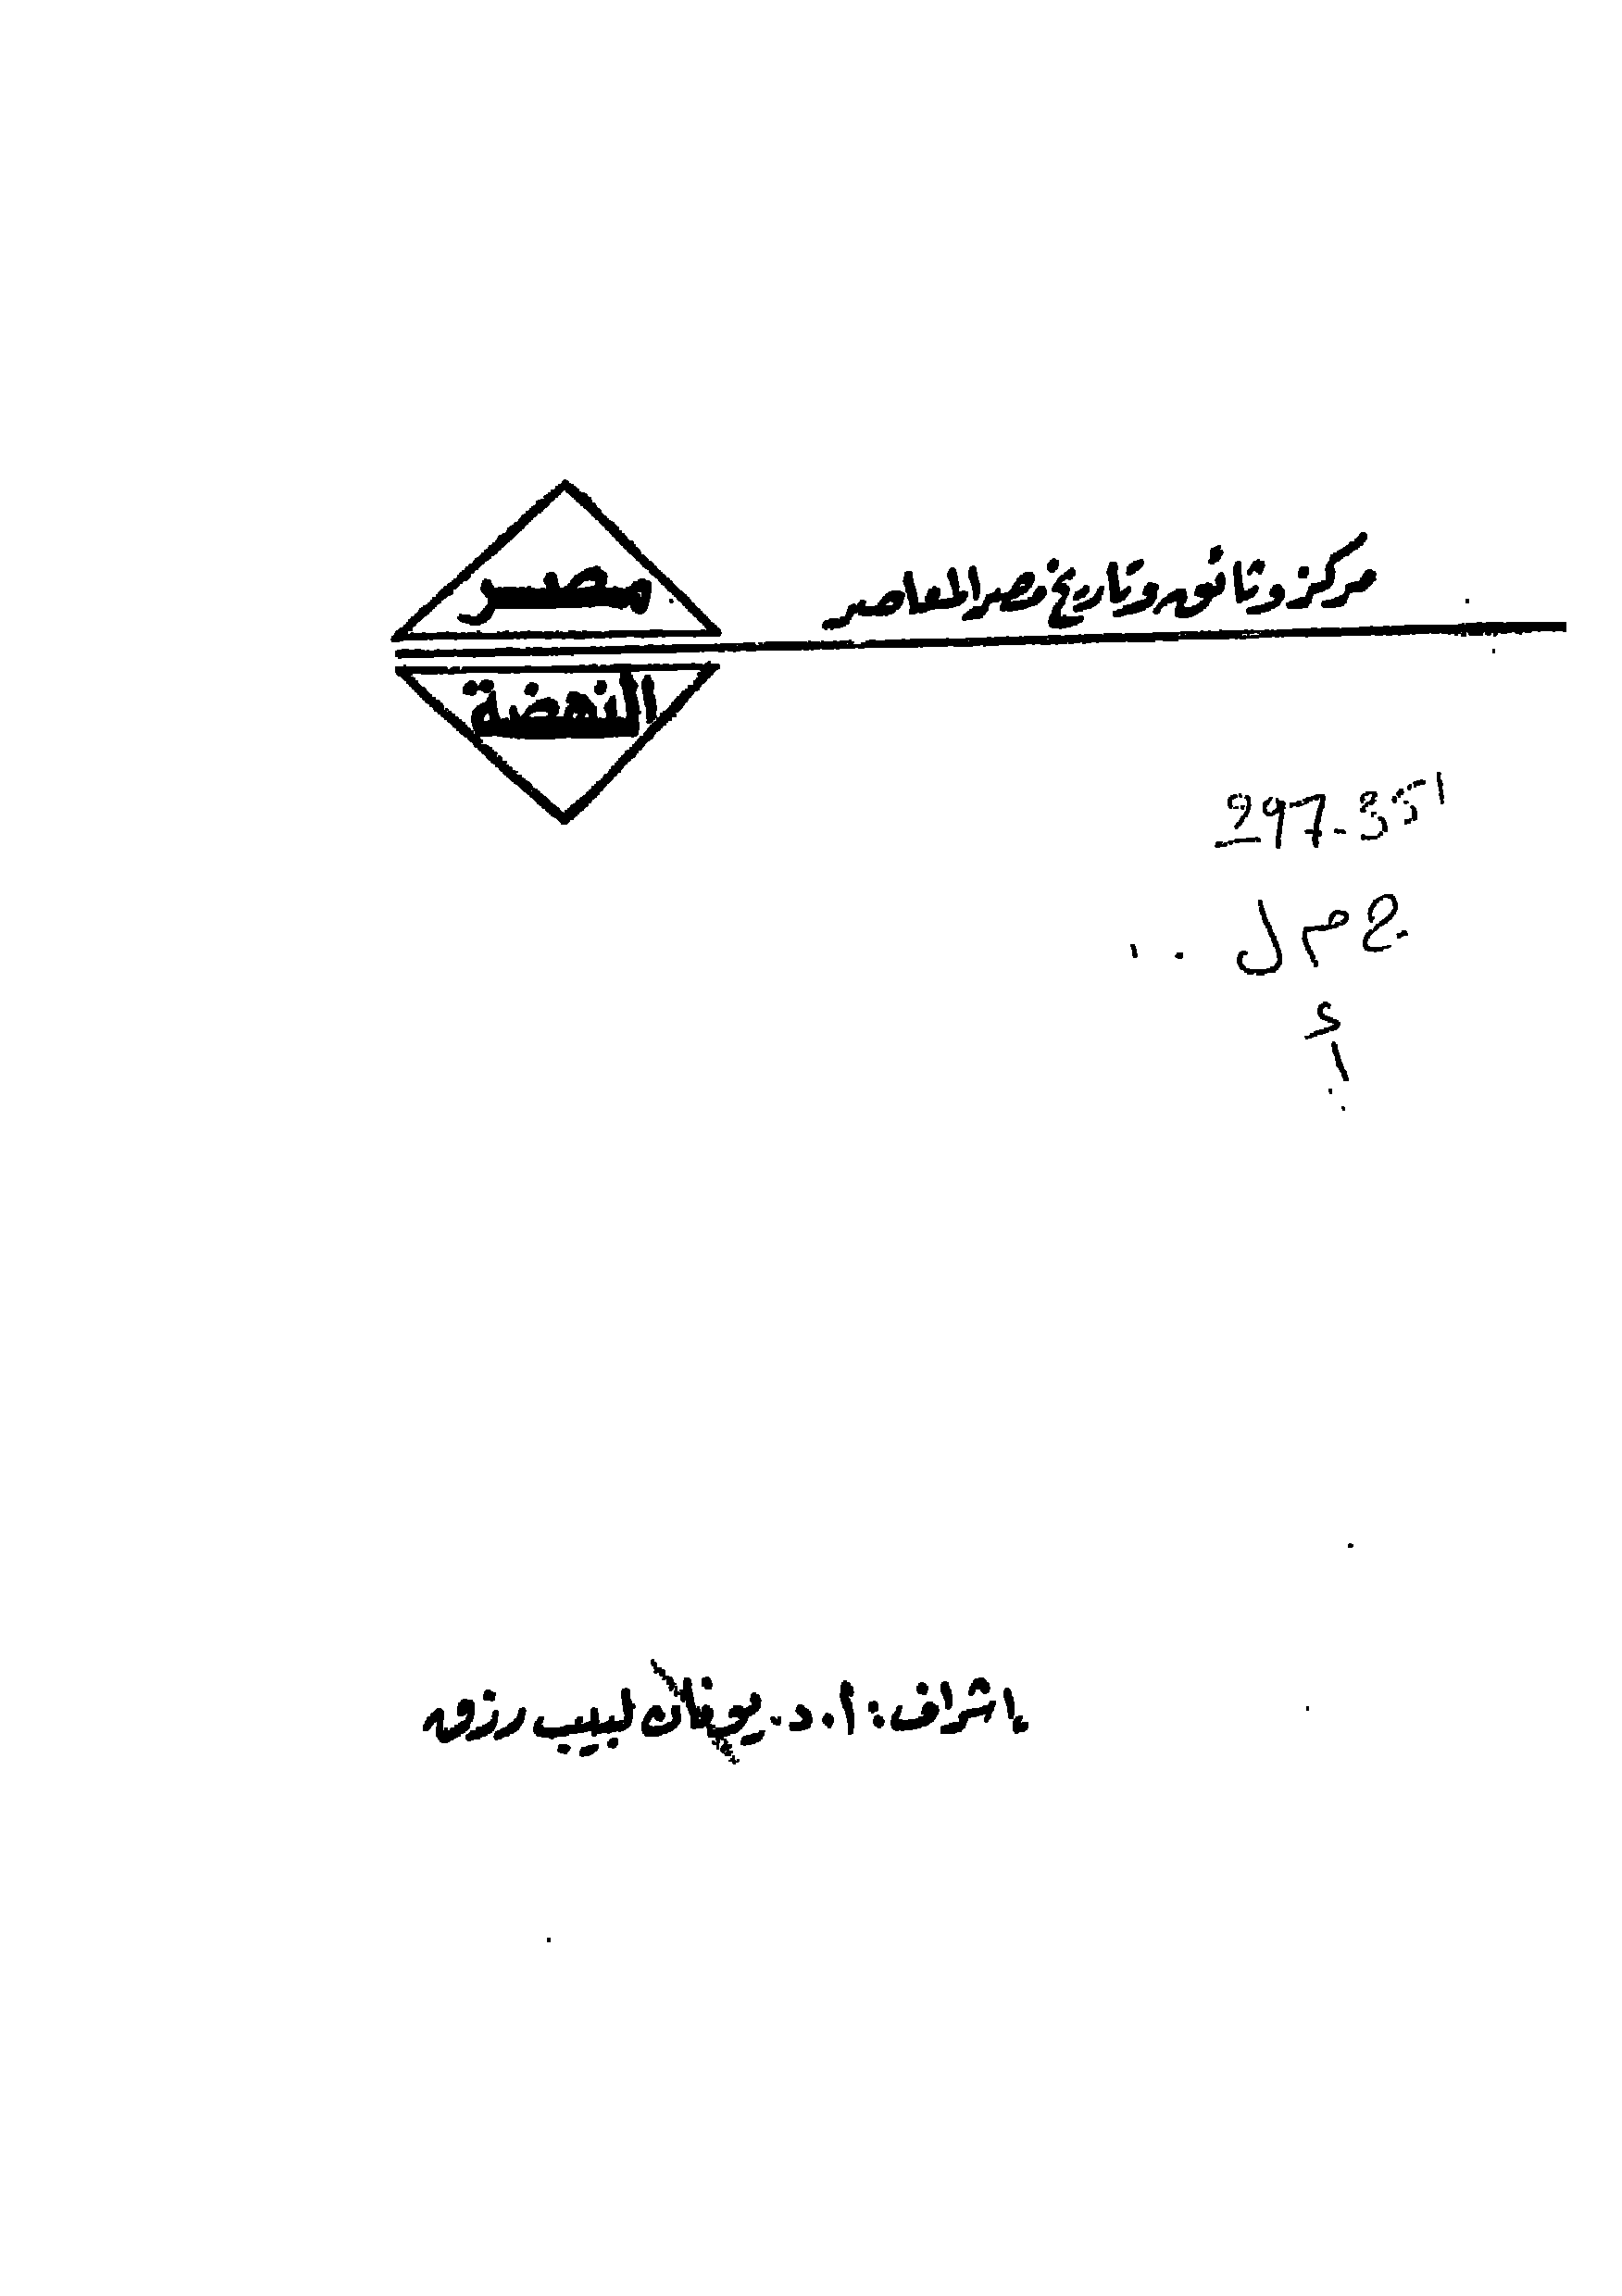 مركز وثائق وتاريخ مصر المعاصر
مصر
النهضة
297.351
ج م ل
أ
إشراف: أ. د. يونان لبيب رزق